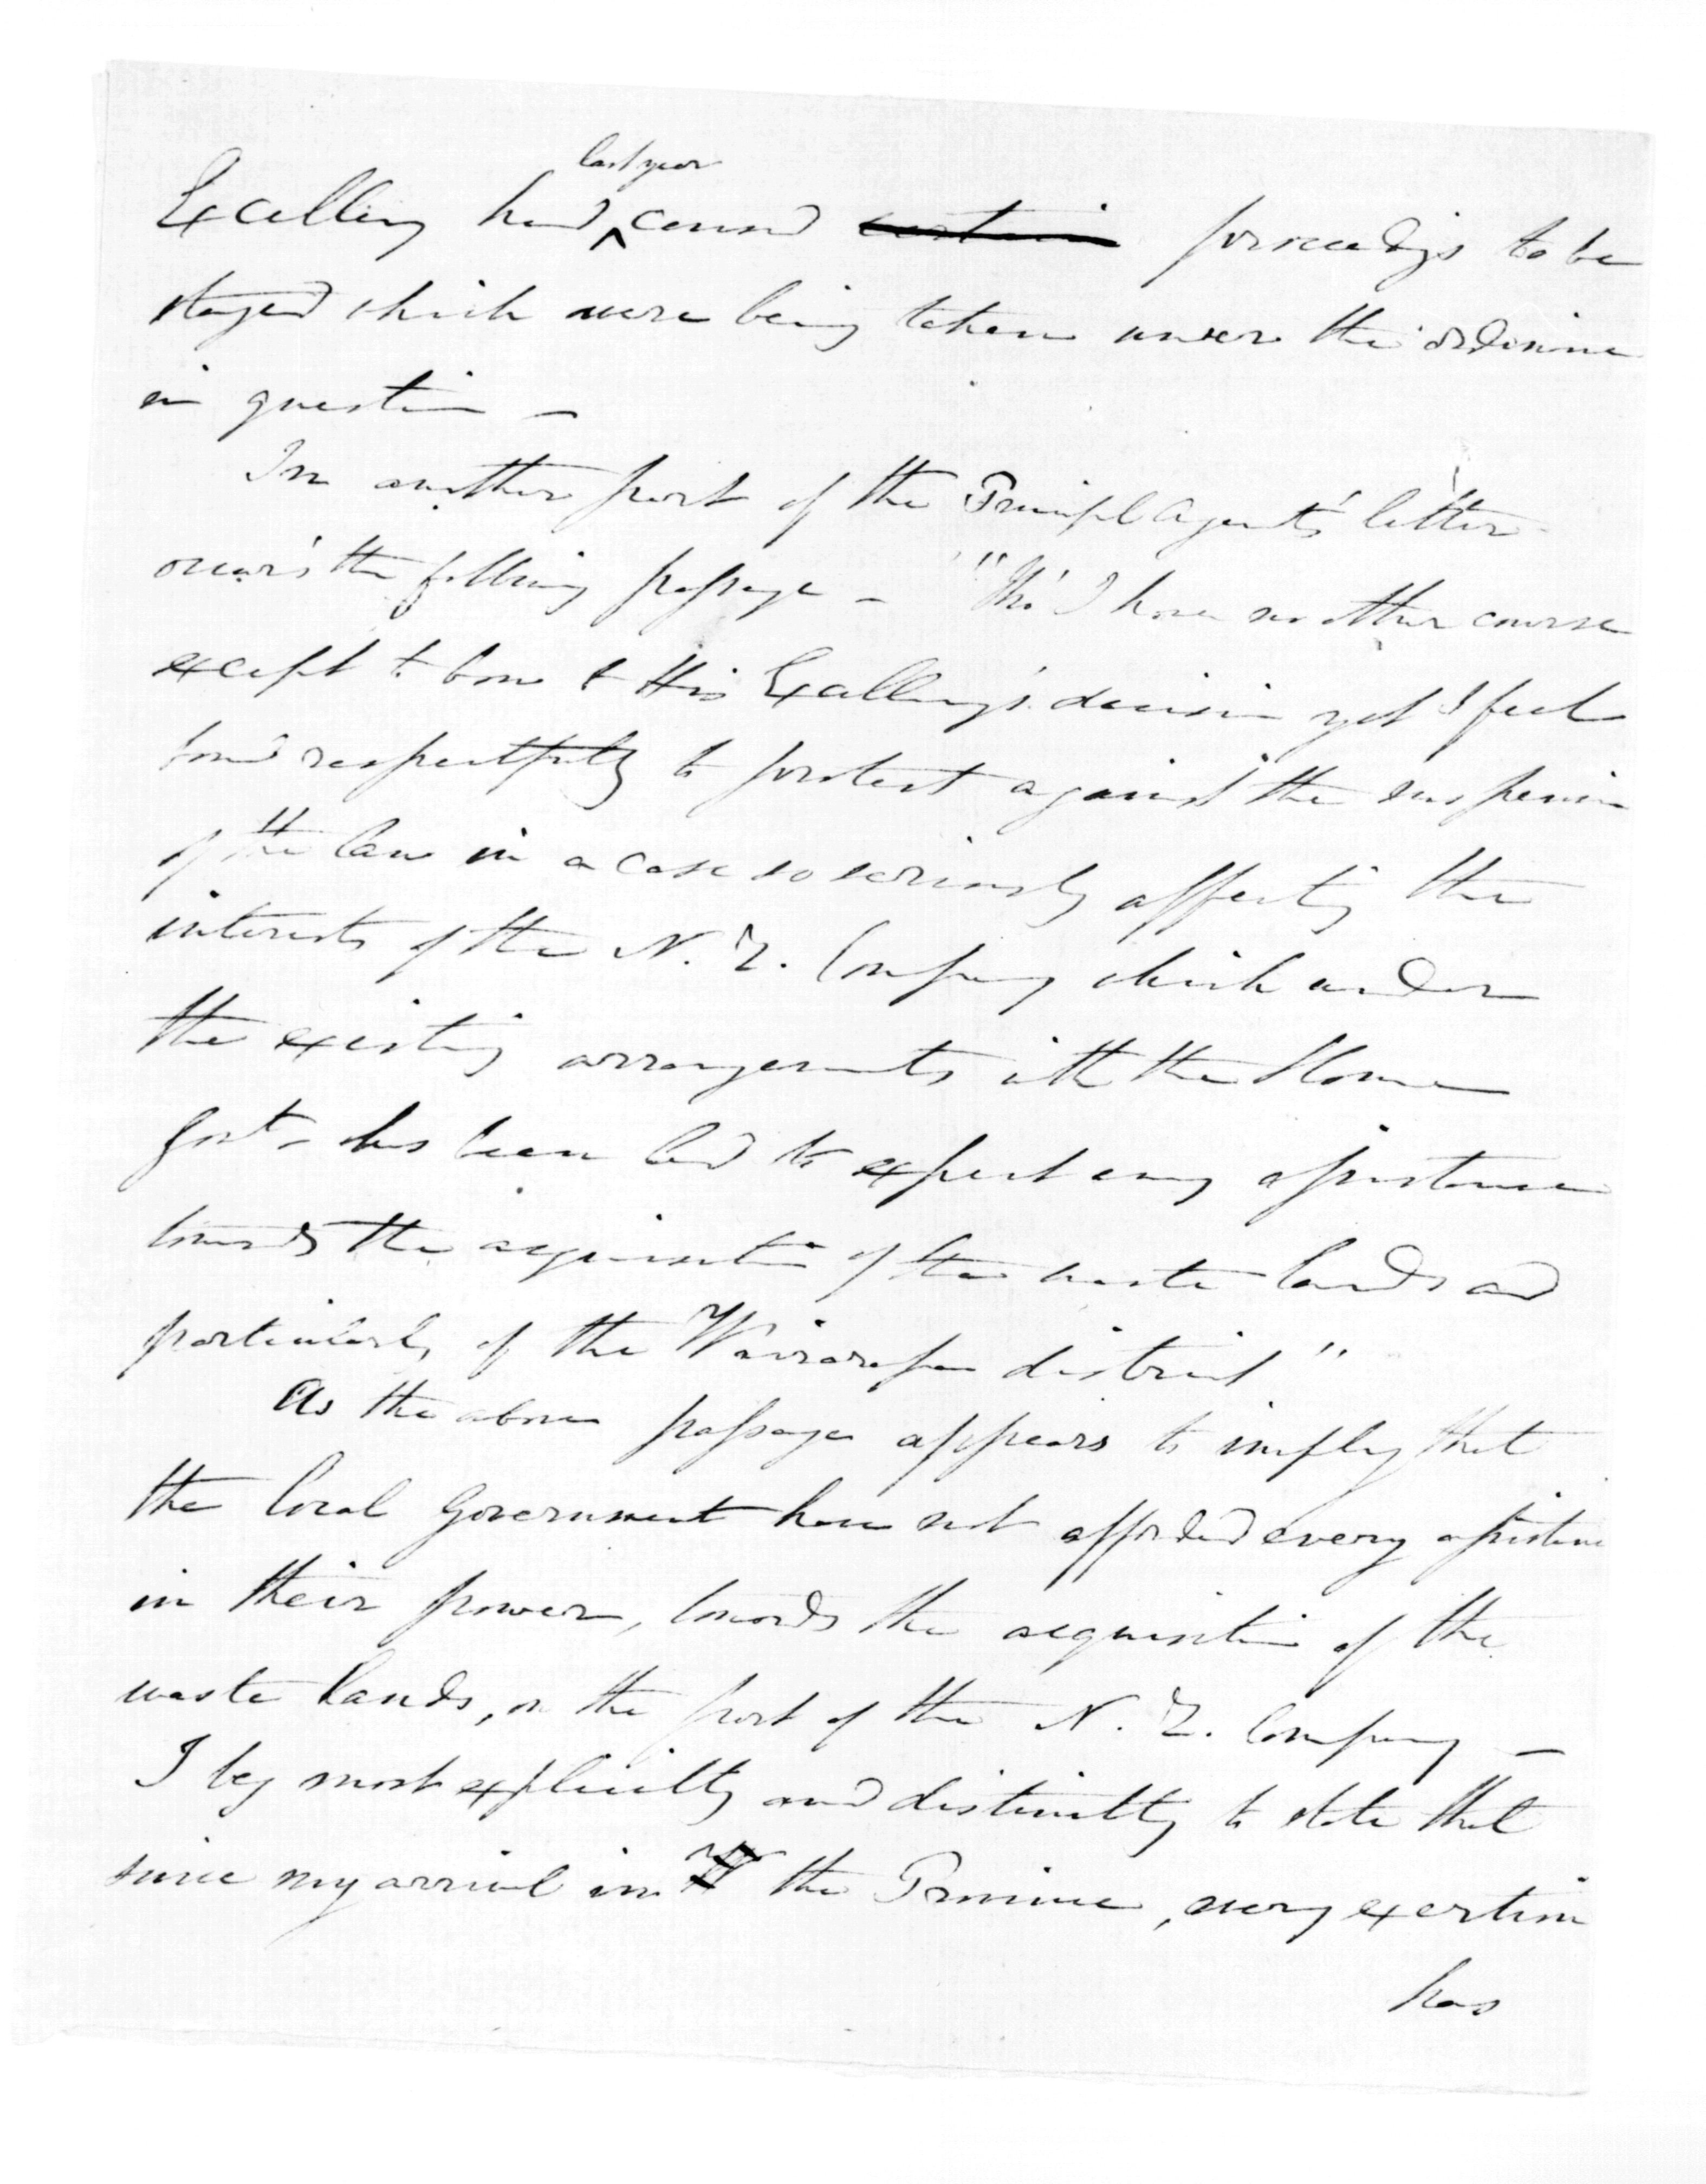 last year
Excellency had ^ caused certain proceedings to be
stayed which were being taken under the ordinance
in question –
In another part of the Principal Agent's letter
occurs the following passage – "Tho' I have no other course
except to bow to His Excellency's decision yet I feel
bound respectfully to protest against the suspension
of the law in a case so seriously affecting the
interests of the N. Z. Company which under
the existing arrangements with the Home
Govt – has been led to expect every assistance
towards the acquisition of the waste lands and
particularly of the Wairarapa district"
As the above passage appears to imply that
the local Government have not afforded every assistance
in their power, towards the acquisition of the
waste lands, on the part of the N. Z. Company –
I beg most explicitly and distinctly to state that
since my arrival in the Province, every exertion
has